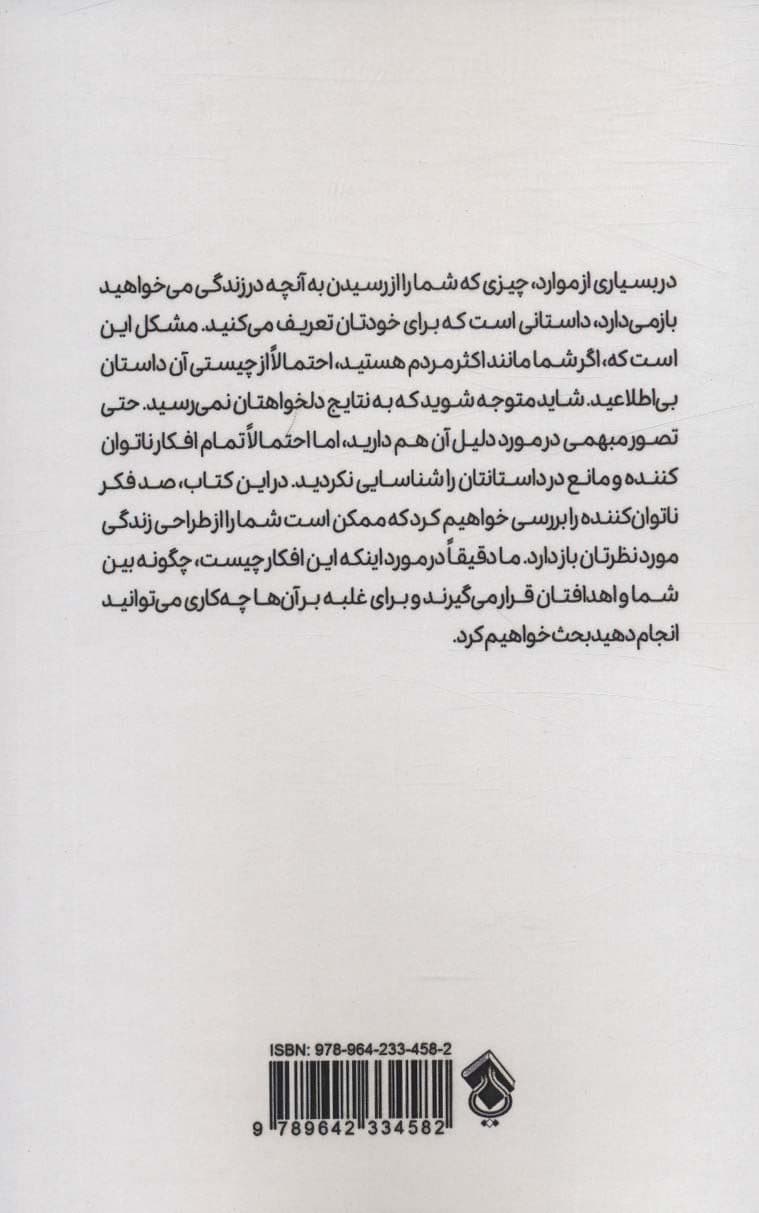 در بسیاری از موارد، چیزی که شما را از رسیدن به آنچه در زندگی می‌خواهید
بازمی‌دارد، داستانی است که برای خودتان تعریف می‌کنید. مشکل این
است که، اگر شما مانند اکثر مردم هستید، احتمالاً از چیستی آن داستان
بی‌اطلاعید. شاید متوجه شوید که به نتایج دلخواهتان نمی‌رسید. حتی
تصور مبهمی در مورد دلیل آن هم دارید، اما احتمالاً تمام افکار ناتوان
کننده و مانع در داستانتان را شناسایی نکردید. در این کتاب، صد فکر
ناتوان‌کننده را بررسی خواهیم کرد که ممکن است شما را از طراحی زندگی
مورد نظرتان باز دارد. ما دقیقاً در مورد اینکه این افکار چیست، چگونه بین
شما و اهدافتان قرار می‌گیرند و برای غلبه بر آن‌ها چه‌کاری می‌توانید
انجام دهید بحث خواهیم کرد.
ISBN: 978-964-233-458-2
9 789642 334582